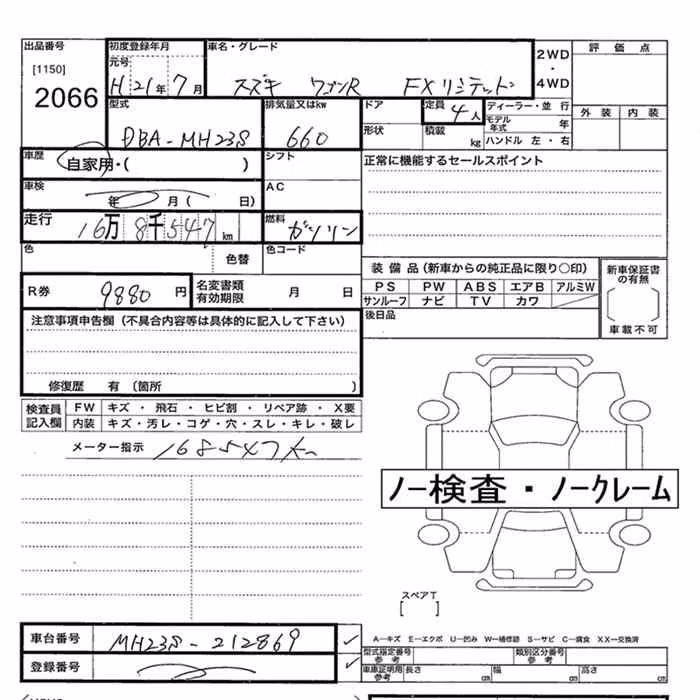 出品番号 初度登録年月 車名・グレード 2WD・4WD 評価点
[1150] 元号
2066 H21年7月 スズキ ワゴンR FXリミテッド
型式 排気量又はkw ドア 定員 4人 ディーラー・並行 外装 内装
DBA-MH23S 660 形状 積載 kg モデル年式 年
ハンドル 左・右
車歴 自家用・( ) シフト 正常に機能するセールスポイント
車検 年 月( 日) AC
走行 16万8千547km 燃料 ガソリン
色 色替 色コード
装備品(新車からの純正品に限り○印) 新車保証書の有無
R券 9880円 名変書類有効期限 月 日 PS PW ABS エアB アルミW
サンルーフ ナビ TV カワ
車載不可
注意事項申告欄(不具合内容等は具体的に記入して下さい) 後日品
修復歴 有 〔箇所 〕
検査員記入欄 FW キズ・飛石・ヒビ割・リペア跡・X要
内装 キズ・汚レ・コゲ・穴・スレ・キレ・破レ
メーター指示 168547km
ノー検査・ノークレーム
スペアT
[ ]
車台番号 MH23S-212869
A—キズ E—エクボ U—凹み W—補修跡 S—サビ C—腐食 XX—交換済
型式指定番号 参考 類別区分番号 参考
登録番号 車庫証明用 参考 長さ cm 幅 cm 高さ cm